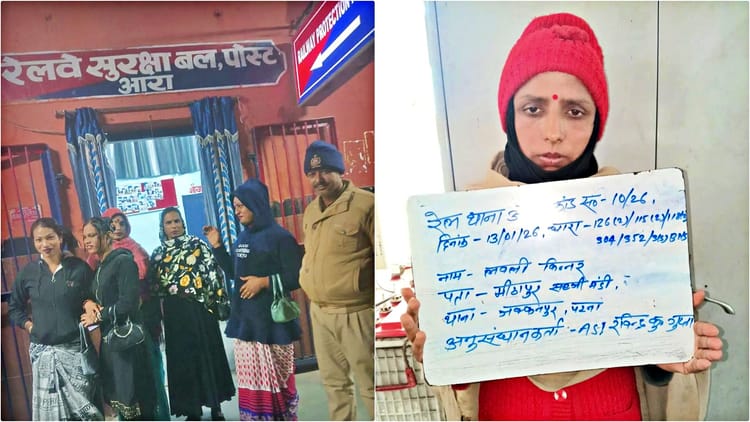 रेलवे सुरक्षा बल, पोस्ट
आरा
RAILWAY PROTECTION
रेल थाना कांड सं०- 10/26,
दिनांक - 13/01/26, धारा- 126(2)/115(2)/
304/352/3(5) BNS
नाम - लवली किन्नर
पता - मीठापुर सब्जी मंडी,
थाना - जक्कनपुर, पटना
अनुसंधानकर्ता - ASI रविन्द्र कु०